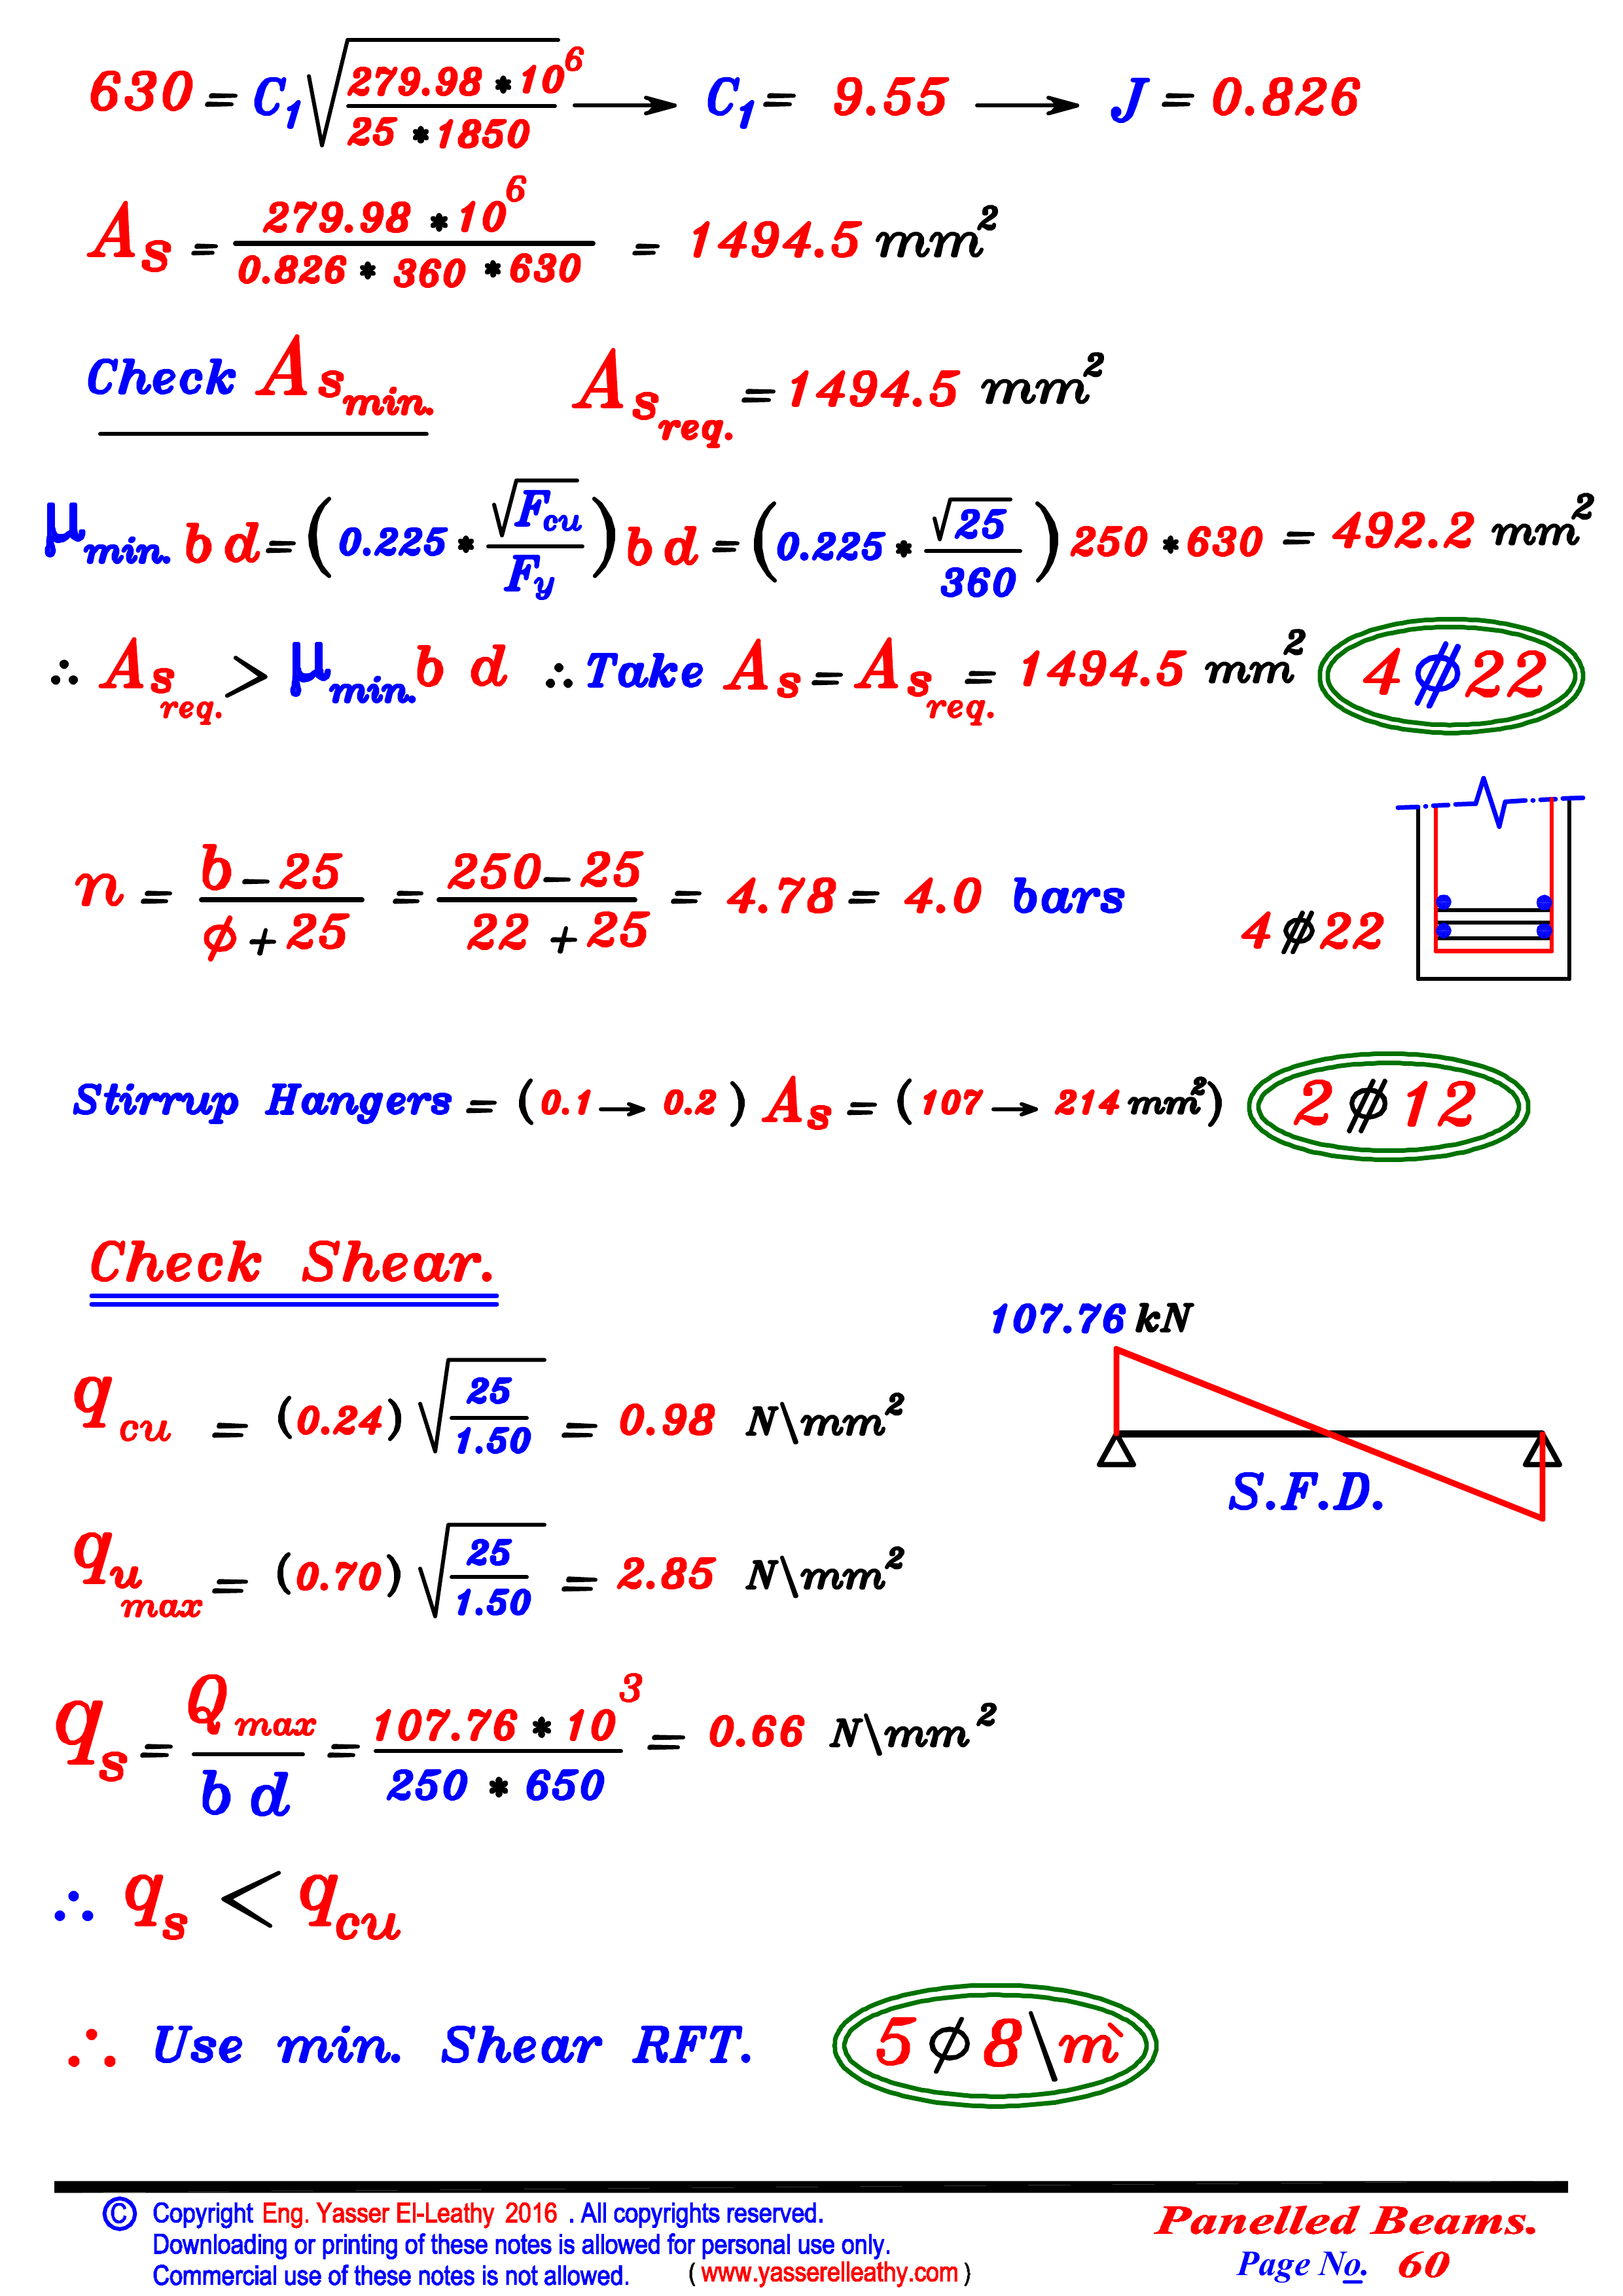 630 = C₁ √(279.98 * 10⁶ / 25 * 1850) → C₁ = 9.55 → J = 0.826
As = 279.98 * 10⁶ / 0.826 * 360 * 630 = 1494.5 mm²
Check As min. As req. = 1494.5 mm²
μ min. b d = (0.225 * √Fcu / Fy) b d = (0.225 * √25 / 360) 250 * 630 = 492.2 mm²
∴ As req. > μ min. b d ∴ Take As = As req. = 1494.5 mm² 4 ϕ 22
n = b - 25 / ϕ + 25 = 250 - 25 / 22 + 25 = 4.78 = 4.0 bars
4 ϕ 22
Stirrup Hangers = (0.1 → 0.2) As = (107 → 214 mm²) 2 ϕ 12
Check Shear.
107.76 kN
q cu = (0.24) √(25 / 1.50) = 0.98 N\mm²
S.F.D.
q u max = (0.70) √(25 / 1.50) = 2.85 N\mm²
q s = Q max / b d = 107.76 * 10³ / 250 * 650 = 0.66 N\mm²
∴ q s < q cu
∴ Use min. Shear RFT. 5 ϕ 8 \ m`
© Copyright Eng. Yasser El-Leathy 2016 . All copyrights reserved.
Downloading or printing of these notes is allowed for personal use only.
Commercial use of these notes is not allowed. ( www.yasserelleathy.com )
Panelled Beams.
Page No. 60